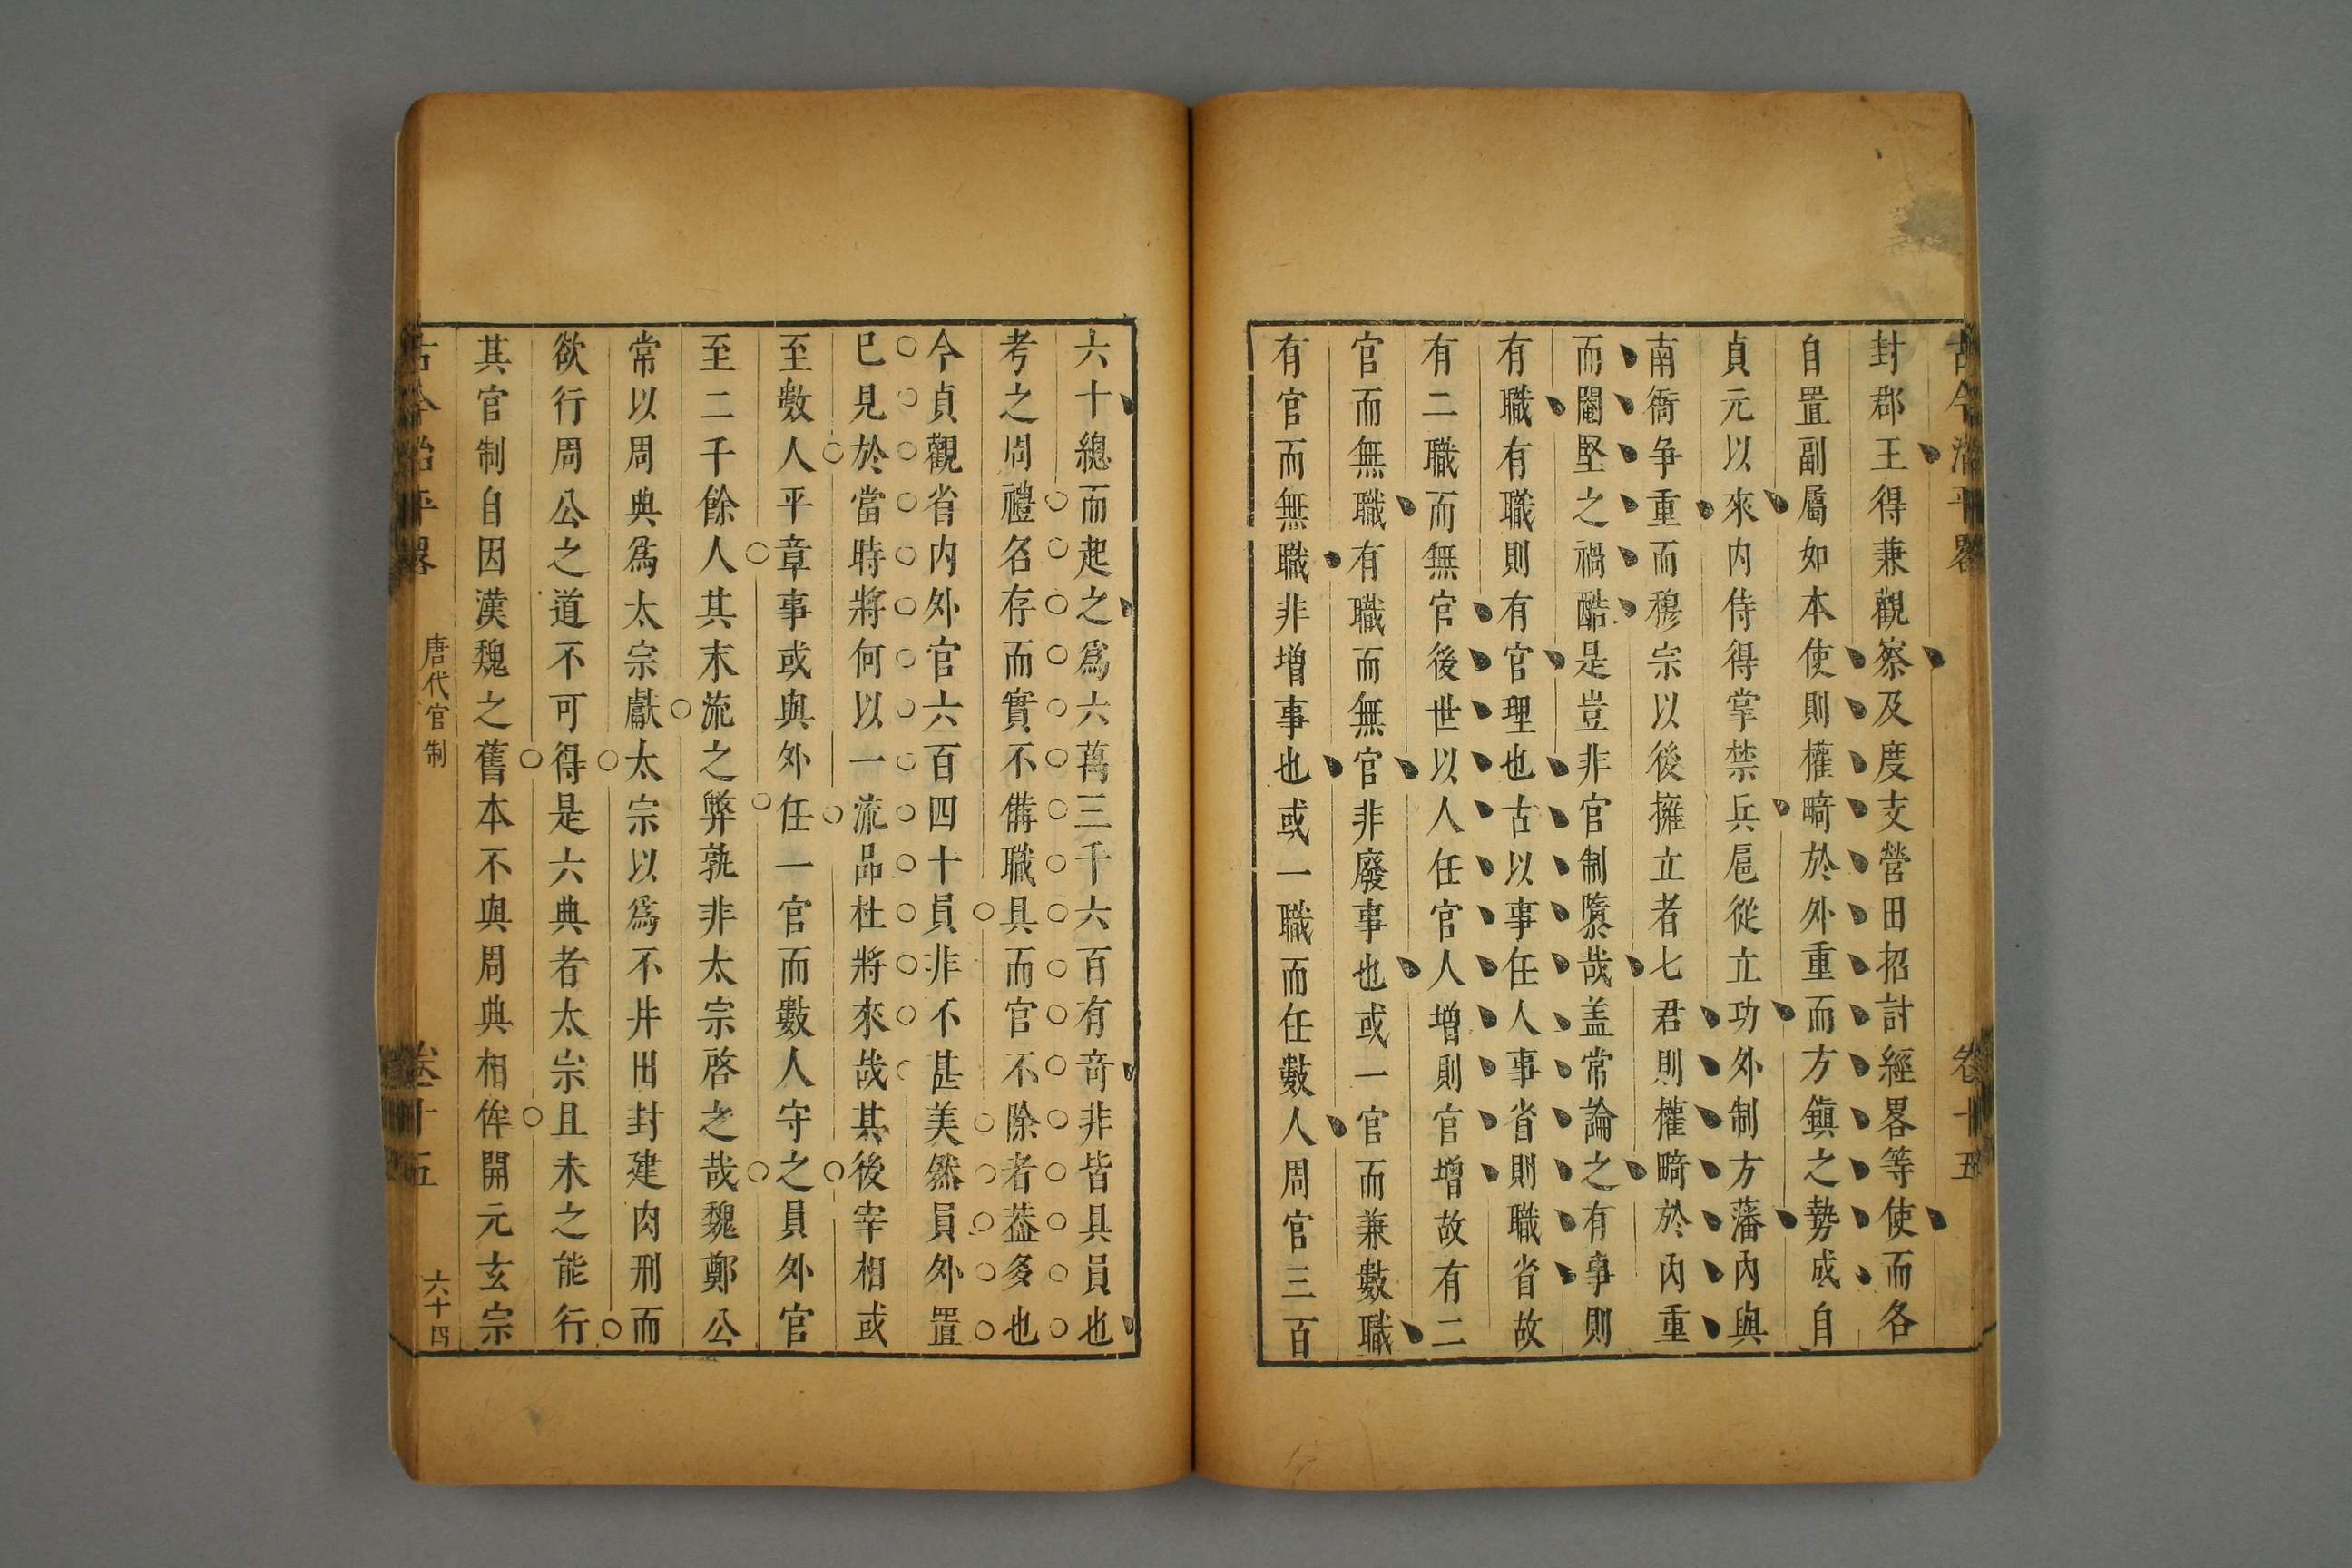 古今治平畧 卷十五
封郡王得兼觀察及度支營田招討經畧等使而各
自置副屬如本使則權畸於外重而方鎭之勢成自
貞元以來内侍得掌禁兵扈從立功外制方藩内與
南衙争重而穆宗以後擁立者七君則權畸於内重
而閹堅之禍酷是豈非官制隳哉盖常論之有事則
有職有職則有官理也古以事任人事省則職省故
有二職而無官後世以人任官人增則官增故有二
官而無職有職而無官非廢事也或一官而兼數職
有官而無職非增事也或一職而任數人周官三百
六十總而起之爲六萬三千六百有竒非皆具員也
考之周禮名存而實不備職具而官不除者葢多也
今貞觀省内外官六百四十員非不甚美然員外置
已見於當時將何以一流品杜將來哉其後宰相或
至數人平章事或與外任一官而數人守之員外官
至二千餘人其末流之弊孰非太宗啓之哉魏鄭公
常以周典爲太宗獻太宗以爲不井田封建肉刑而
欲行周公之道不可得是六典者太宗且未之能行
其官制自因漢魏之舊本不與周典相侔開元玄宗
古今治平畧 唐代官制 卷十五 六十四